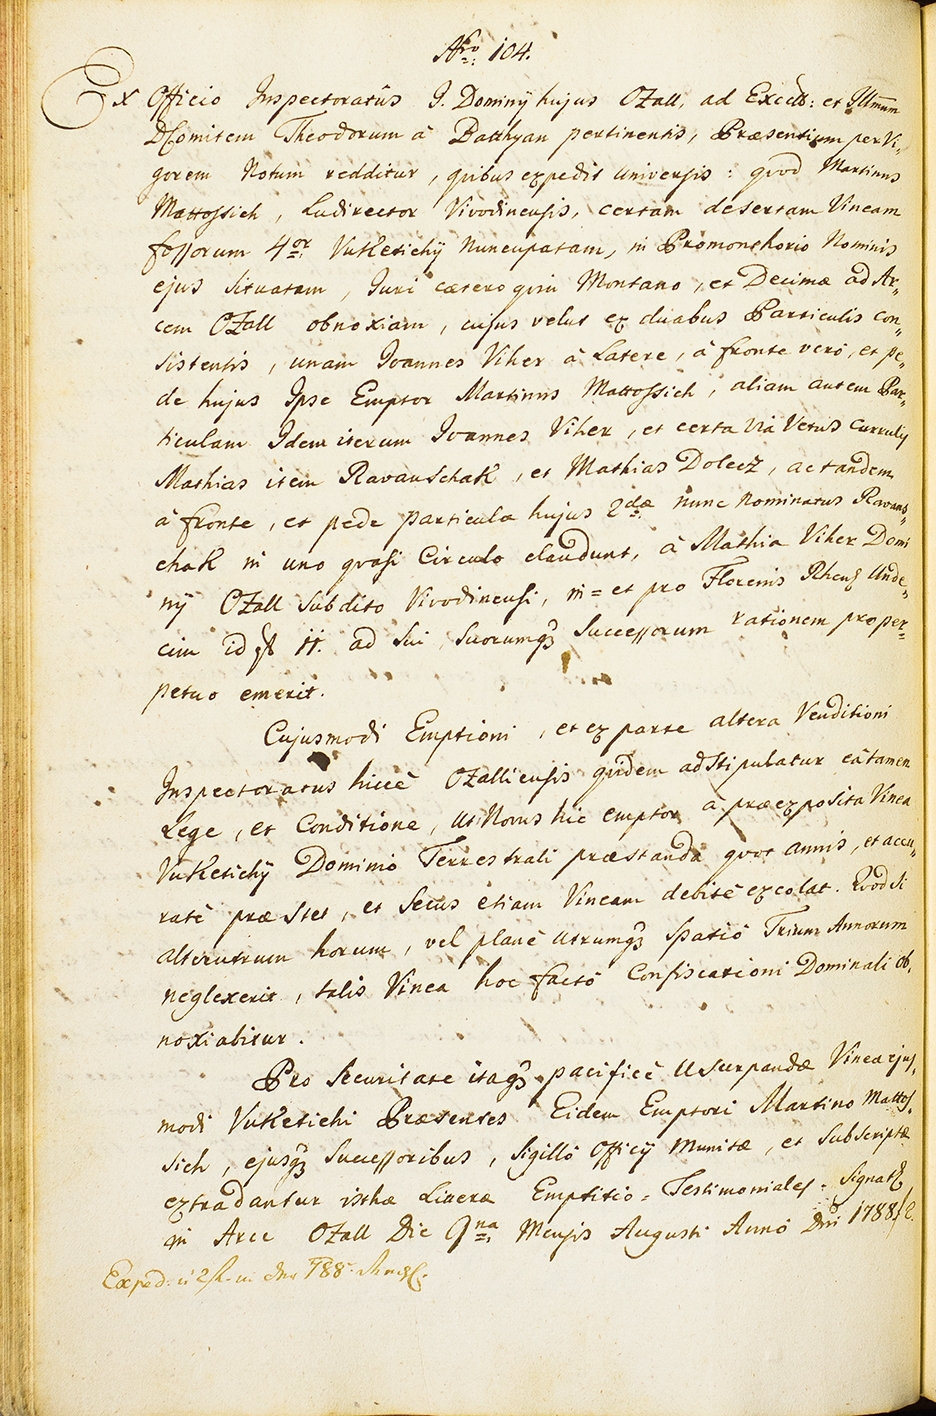 Nro 104.
Ex Officio Inspectoratûs I. Dominÿ hujus Ozall, ad Excell: et Illmum
D. Comitem Theodorum à Batthyan pertinentis, Præsentium per Vi„
gorem Notum redditur, quibus expedit universis: quod Martinus
Mattossich, Ludirector Vivodinensis, certam desertam Vineam
fossorum 4or Vuketichÿ nuncupatam, in Promonthorio Nominis
ejus situatam, Juri cæteroquin Montano, et Decimæ ad Ar„
cem Ozall obnoxiam, cujus velut ex duabus Particulis con„
sistentis, unam Joannes Viher à Latere, à fronte verò, et pe„
de hujus Ipse Emptor Martinus Mattossich, aliam autem Par„
ticulam Idem iterum Joannes Viher, et certa Via Vetus Currulis
Mathias item Ravanschak, et Mathias Dolecz, ac tandem
à fronte, et pede particulæ hujus 2dæ nunc Nominatus Ravans„
chak in uno quasi Circulo claudunt, à Mathia Viher Domi
nÿ Ozall subdito Vivodinensi, in = et pro Florenis Rhens Unde„
cim id est 11. ad sui, suorumq3 Successorum rationem pro per„
petuo emerit.
Cujusmodi Emptioni, et ex parte altera Venditioni
Inspectoratus hicce Ozalliensis quidem adstipulatur eâ tamen
Lege, et Conditione, ut Novus hic emptor à præexposita Vinea
Vuketichÿ Dominio Terrestrali præstanda quot annis, et accu„
ratè præstet, et secus etiam Vineam debitè excolat. Quod si
alterutrum horum, vel planè utrumq3 spatiô Trium Annorum
neglexerit, talis Vinea hoc factô Confiscationi Dominali ob„
noxiabitur.
Pro securitate itaq3 pacificè usurpandæ Vineæ ejus„
modi Vuketichi Præsentes Eidem Emptori Martino Mattos„
sich, ejusq3 Successoribus, sigillô Officÿ munitæ, et subscriptæ
extradantur isthæ Literæ Emptitio = Testimoniales. Signat
in Arce Ozall Die 9na Mensis Augusti Annô Dni 1788
Exped: 788